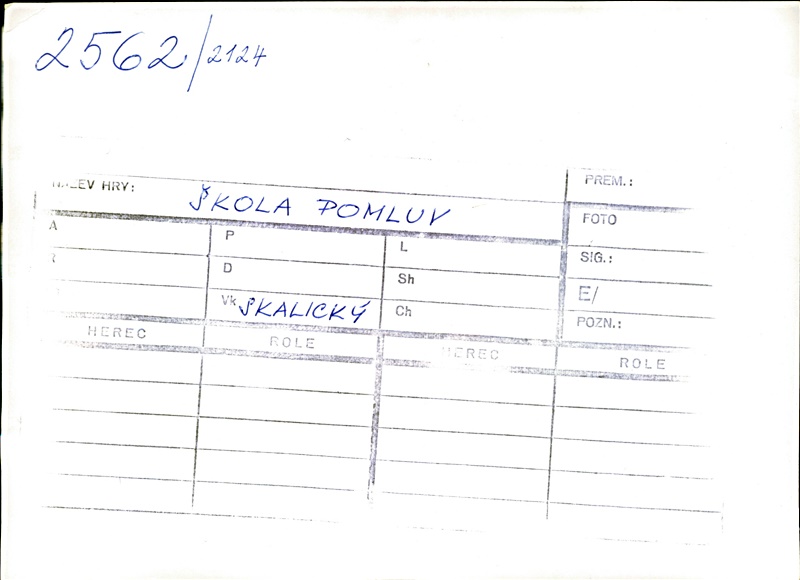 2562/2124
PREM.:
HRY: ŠKOLA POMLUV
FOTO
A P L
SIG.:
D Sh
E/
Vk SKALICKÝ Ch
POZN.:
HEREC ROLE HEREC ROLE